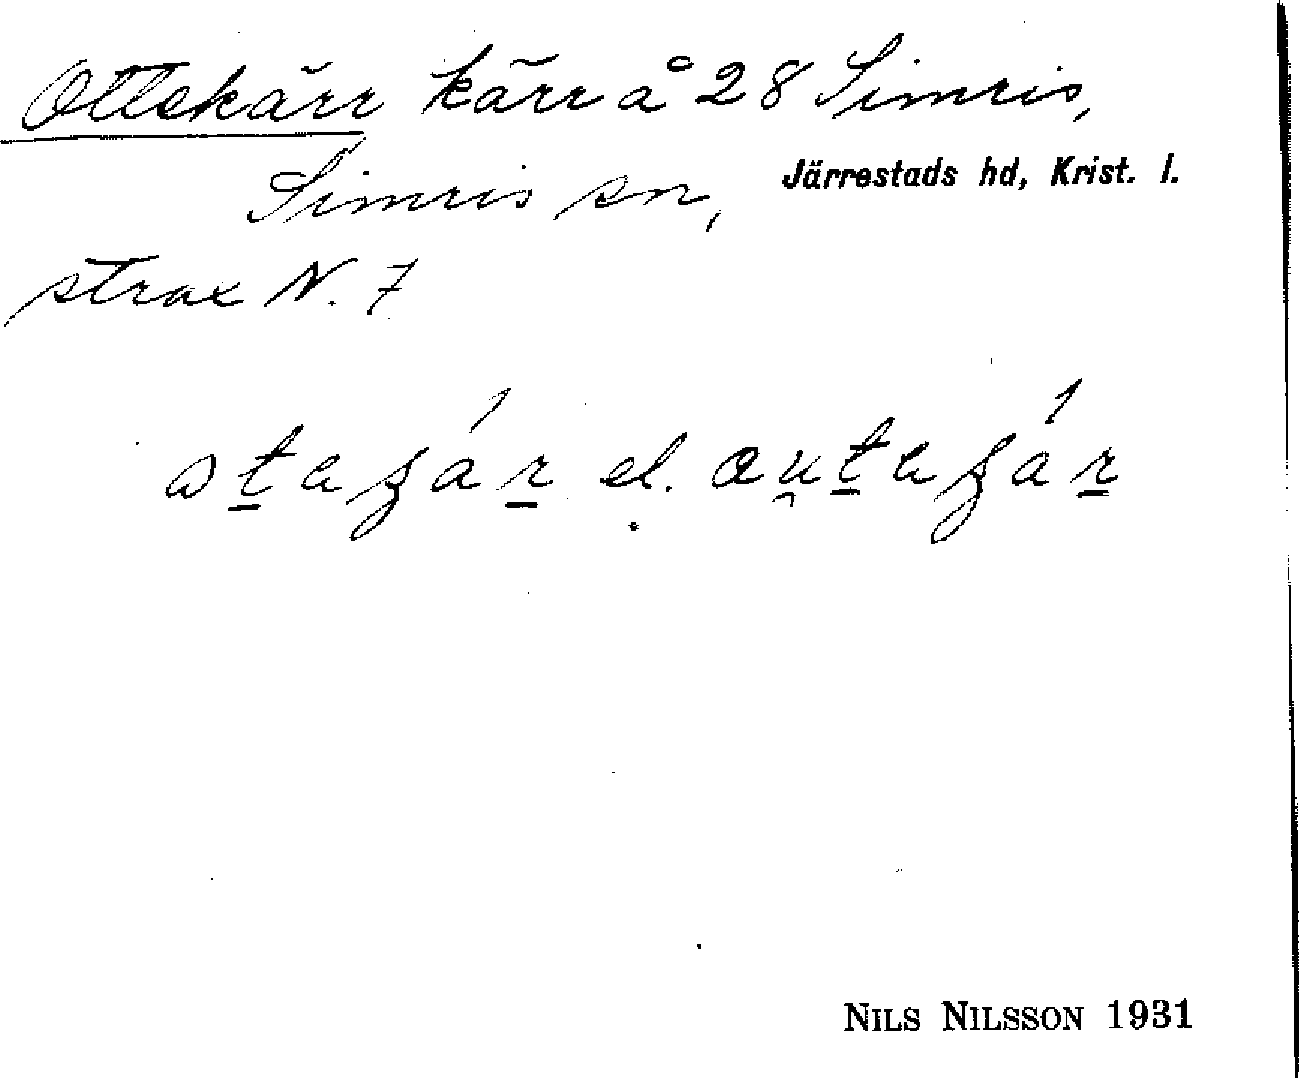 Ottekärr kärr å 28 Simris,
Simris sn, Järrestads hd, Krist. l.
strax N. 7
el.
NILS NILSSON 1931